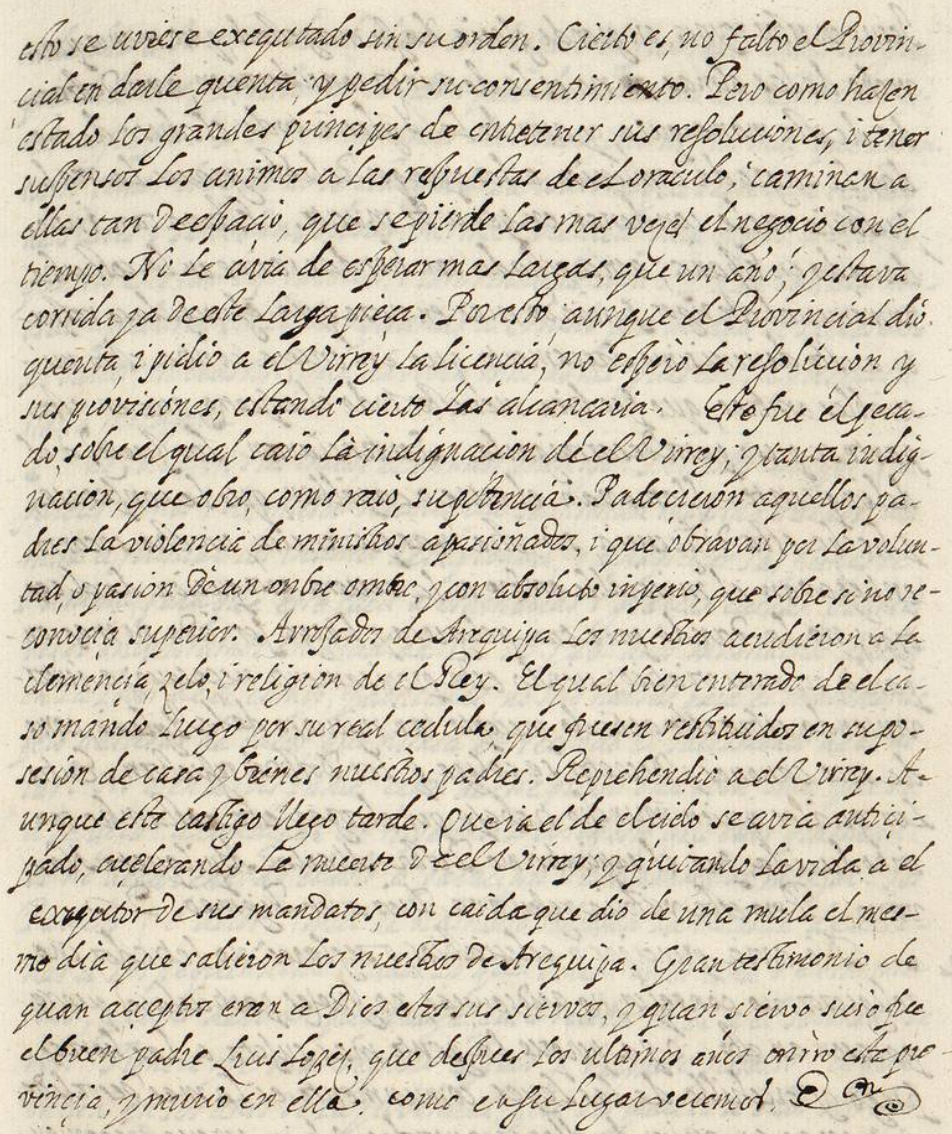 esto se uviese exequtado sin su orden. Cierto es, no falto el Provin-
cial en darle quenta, y pedir su consentimiento. Pero como hazen
estado los grandes principes de entretener sus resoluciones, i tener
suspensos los animos a las respuestas de el oraculo, caminan a
ellas tan de espacio, que se pierde las mas vezes el negocio con el
tiempo. No le avia de esperar mas largas, que un año; y estava
corrida ya de este larga pieça. Por esto, aunque el Provincial dio
quenta, i pidio a el Virrey la licencia, no espero la resolucion y
sus provisiones, estando cierto las alcançaria. Este fue el peca-
do, sobre el qual caio la indignacion de el Virrey; y tanta indig-
nacion, que obro, como raio, su potencia. Padecieron aquellos pa-
dres la violencia de ministros apasionados, i que obravan por la volun-
tad, o pasion de un onbre onbre, y con absoluto inperio, que sobre si no re-
conocia superior. Arrojados de Arequipa los nuestros acudieron a la
clemencia, zelo, i religion de el Rey. El qual bien enterado de el ca-
so mando luego por su real cedula, que fuesen restituidos en su po-
sesion de casa y bienes nuestros padres. Reprehendio a el Virrey. A-
unque este castigo llego tarde. Que ia el de el cielo se avia antici-
pado, acelerando la muerte de el Virrey; y quitando la vida a el
exequtor de sus mandatos, con caida que dio de una mula el mes-
mo dia que salieron los nuestros de Arequipa. Gran testimonio de
quan acceptos eran a Dios estos sus siervos, y quan siervo suio fue
el buen padre Luis Lopez, que despues los ultimos años onrro esta pro-
vincia, y murio en ella. como en su lugar veremos.